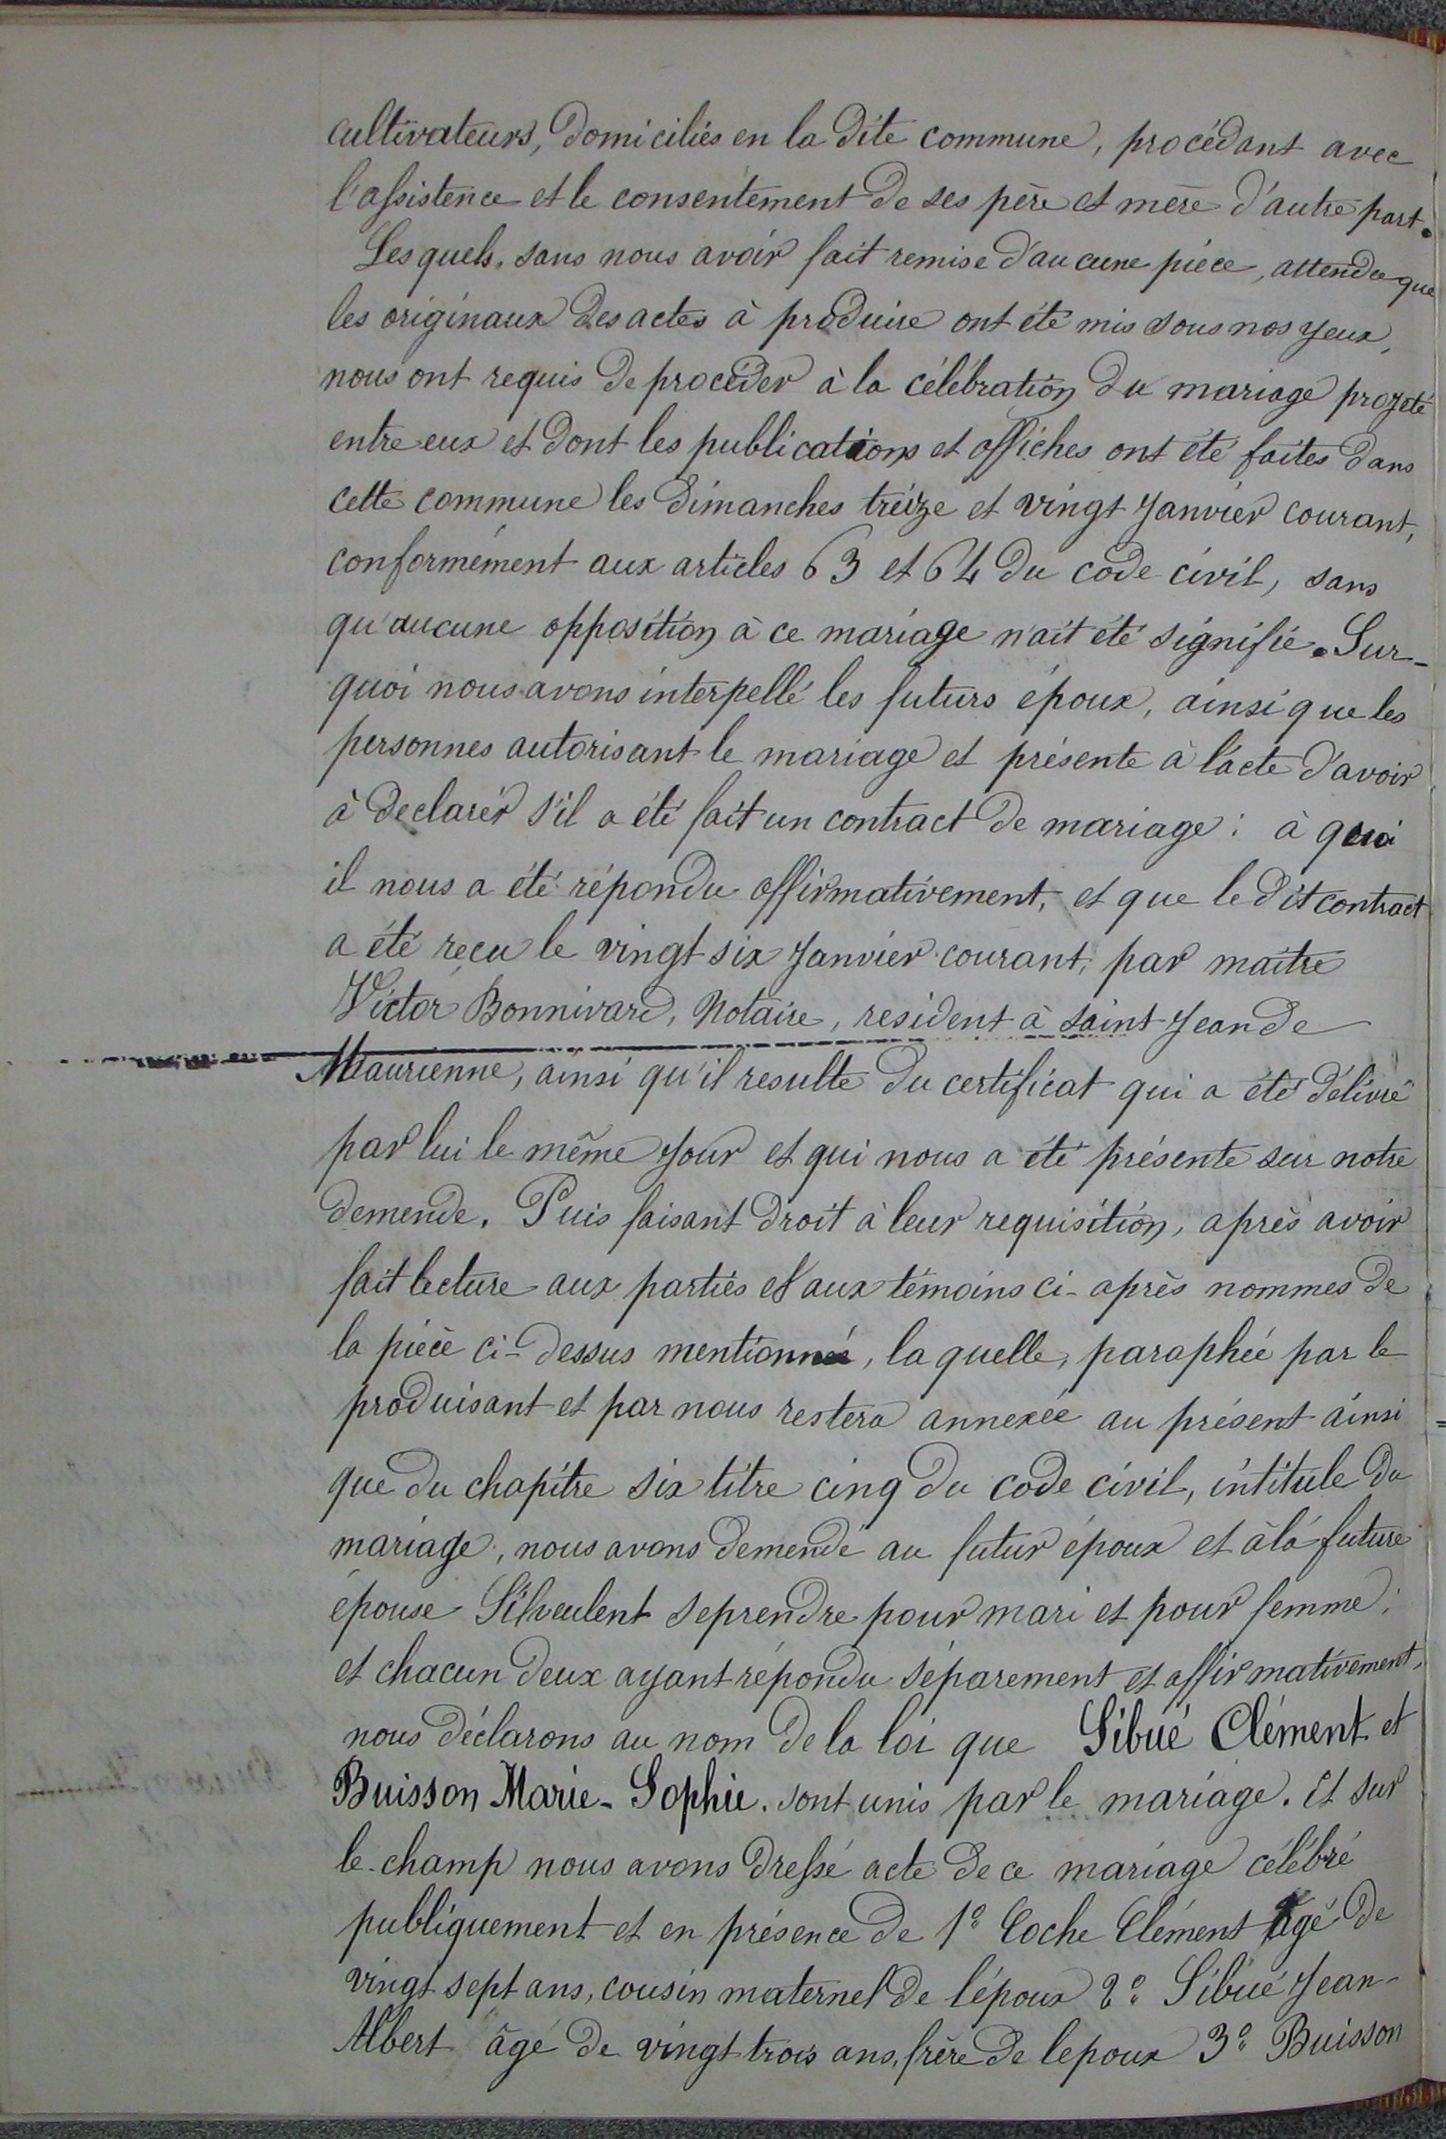 cultivateurs, domiciliés en la dite commune, procédant avec
l'assistence et le consentement de ses père et mère d'autre part.
Lesquels, sans nous avoir fait remise d'aucune pièce, attendu que
les originaux des actes à produire ont été mis sous nos yeux,
nous ont requis de procéder à la célébration du mariage projeté
entre eux et dont les publications et affiches ont été faites dans
cette commune les dimanches treize et vingt Janvier courant,
conformément aux articles 63 et 64 du code civil, sans
qu'aucune opposition à ce mariage n'ait été signifié. Sur-
quoi nous avons interpellé les futurs époux, ainsi que les
personnes autorisant le mariage et présente à l'acte d'avoir
à declarér s'il a été fait un contract de mariage: à quoi
il nous a été répondu affirmativement, et que le dit contract
a été reçu le vingt six Janvier courant, par maitre
Victor Bonnivard, Notaire, resident à saint Jean de
Maurienne, ainsi qu'il resulte du certificat qui a été délivré
par lui le même Jour et qui nous a été présente sur notre
demende. Puis faisant droit à leur requisition, après avoir
fait lecture aux parties et aux témoins ci-après nommes de
la pièce ci-dessus mentionnée, la quelle, paraphée par le
produisant et par nous restera annexée au présent ainsi
que du chapitre six titre cinq du code civil, intitule du
mariage, nous avons demendé au futur époux et à la future
épouse S'ilveulent se prendre pour mari et pour femme;
et chacun deux ayant répondu séparement et affirmativement,
nous déclarons au nom de la loi que Sibué Clément et
Buisson Marie-Sophie. sont unis par le mariage. Et sur
le-champ nous avons dressé acte de ce mariage célébré
publiquement et en présence de 1° Coche Clément âgé de
vingt sept ans, cousin maternel de l'époux 2° Sibué Jean-
Albert âgé de vingt trois ans, frère de lepoux 3° Buisson